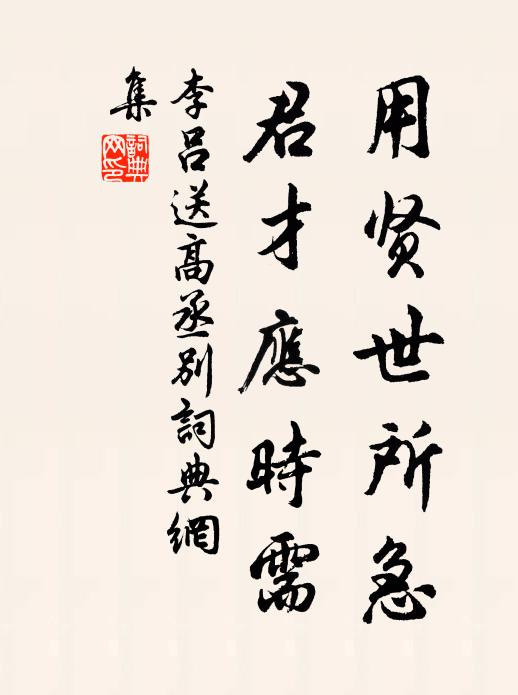 用贤世所急
君才應時需
李吕送高丞别詞典網
集
詞典網印